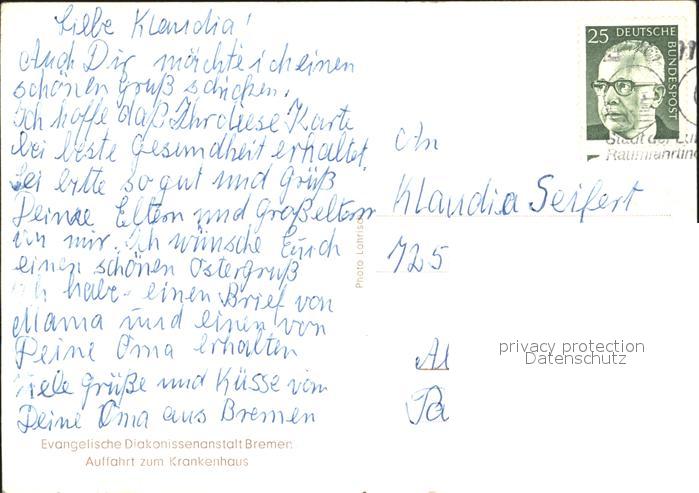 Liebe Klaudia!
Auch Dir möchte ich einen
schönen Gruß schicken.
Ich hoffe daß Ihr diese Karte
bei beste Gesundheit erhaltet.
Sei bitte so gut und Grüß
Deine Eltern und Großeltern
von mir. Ich wünsche Euch
einen schönen Ostergruß
Ich habe einen Brief von
Mama und einen von
Deine Oma erhalten
Viele Grüße und Küsse von
Deine Oma aus Bremen
Evangelische Diakonissenanstalt Bremen
Auffahrt zum Krankenhaus
Photo Lohrisch
25 DEUTSCHE
BUNDESPOST
Stadt der
Raumfahrtin
An
Klaudia Seifert
725
Al
Pa
privacy protection
Datenschutz